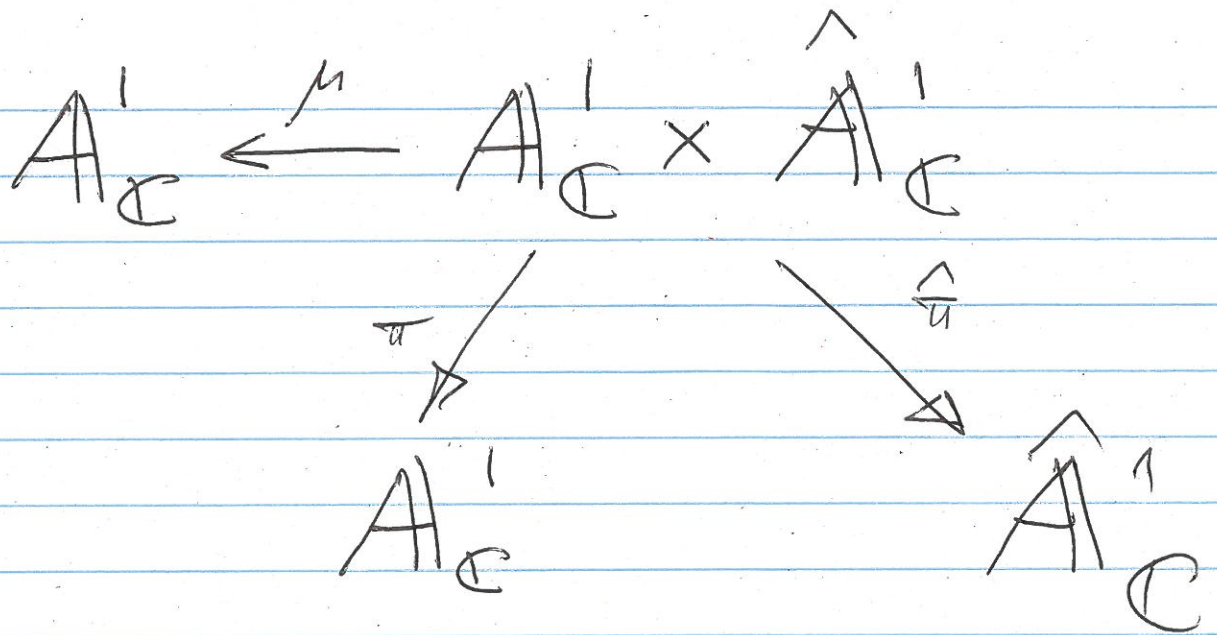 𝔸¹_ℂ ←μ 𝔸¹_ℂ × 𝔸̂¹_ℂ
π π̂
𝔸¹_ℂ 𝔸̂¹_ℂ